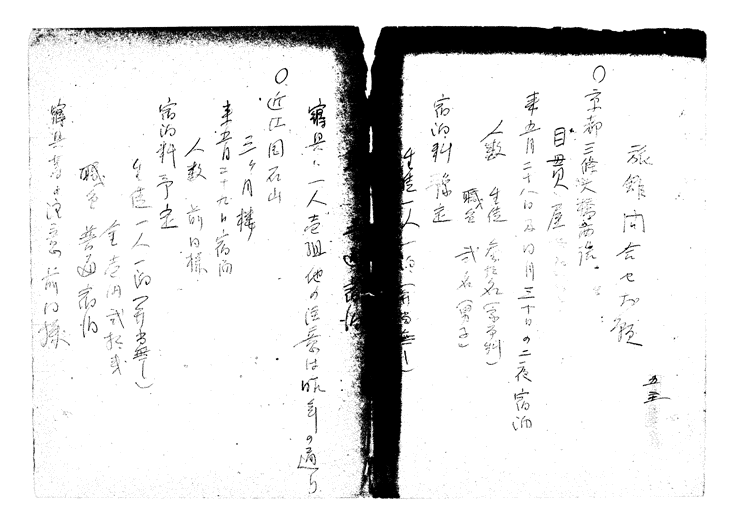 旅館問合セ
五、五
○京都三條大橋
目貫屋
来五月二十八日 三十日の二夜宿泊
人数 生徒 参拾名
職員 弐名(男子)
宿泊料 予定
生徒一人一泊(弁当無シ)
普通宿泊
寝具、一人壱組 他の注意は昨年の通り
○近江国石山
三日月楼
来五月二十九日宿泊
人数 前同様
宿泊料予定
生徒一人一泊(弁当無シ)
金壱円弐拾銭
職員 普通宿泊
寝具其の他注意前同様